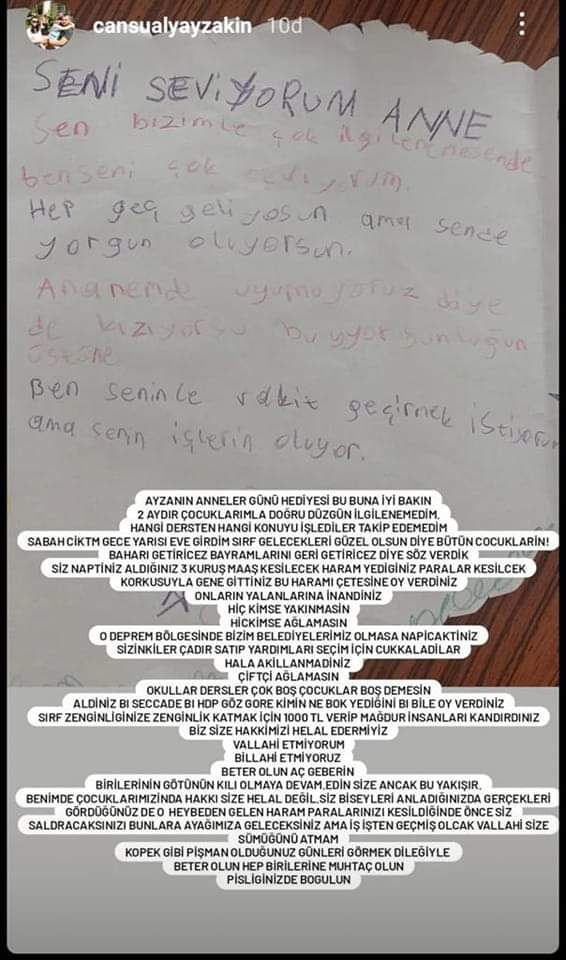 cansualyayzakin 10d
SENİ SEVİYORUM ANNE
Sen bizimle çok ilgilenemesende
ben seni çok seviyorum.
Hep geç geliyosun ama sende
yorgun oluyorsun.
Ananemde uyumuyoruz diye
de kızıyorsu bu yorgunluğun
üstüne
Ben seninle vakit geçirmek istiyorum
ama senin işlerin oluyor.
AYZANIN ANNELER GÜNÜ HEDİYESİ BU BUNA İYİ BAKIN
2 AYDIR ÇOCUKLARIMLA DOĞRU DÜZGÜN İLGİLENEMEDİM,
HANGİ DERSTEN HANGİ KONUYU İŞLEDİLER TAKİP EDEMEDİM
SABAH CİKTM GECE YARISI EVE GİRDİM SIRF GELECEKLERİ GÜZEL OLSUN DİYE BÜTÜN COCUKLARİN!
BAHARI GETİRİCEZ BAYRAMLARINI GERİ GETİRİCEZ DİYE SÖZ VERDİK
SİZ NAPTİNİZ ALDIĞINIZ 3 KURUŞ MAAŞ KESİLECEK HARAM YEDİGİNİZ PARALAR KESİLCEK
KORKUSUYLA GENE GİTTİNİZ BU HARAMİ ÇETESİNE OY VERDİNİZ
ONLARIN YALANLARINA İNANDİNİZ
HİÇ KİMSE YAKINMASİN
HİCKİMSE AĞLAMASIN
O DEPREM BÖLGESİNDE BİZİM BELEDİYELERİMİZ OLMASA NAPİCAKTİNİZ
SİZİNKİLER ÇADIR SATIP YARDIMLARI SEÇİM İÇİN CUKKALADİLAR
HALA AKİLLANMADİNİZ
ÇİFTÇİ AĞLAMASIN
OKULLAR DERSLER ÇOK BOŞ ÇOCUKLAR BOŞ DEMESİN
ALDİNİZ BI SECCADE BI HDP GÖZ GORE KİMİN NE BOK YEDİĞİNİ BI BİLE OY VERDİNİZ
SIRF ZENGİNLİGİNİZE ZENGİNLİK KATMAK İÇİN 1000 TL VERİP MAĞDUR İNSANLARI KANDIRDINIZ
BİZ SİZE HAKKİMİZİ HELAL EDERMİYİZ
VALLAHİ ETMİYORUM
BİLLAHİ ETMİYORUZ
BETER OLUN AÇ GEBERİN
BİRİLERİNİN GÖTÜNÜN KILI OLMAYA DEVAM,EDİN SİZE ANCAK BU YAKIŞIR,
BENİMDE ÇOCUKLARIMIZINDA HAKKI SİZE HELAL DEĞİL,SİZ BİSEYLERİ ANLADIĞINIZDA GERÇEKLERİ
GÖRDÜĞÜNÜZ DE O HEYBEDEN GELEN HARAM PARALARINIZI KESİLDİĞİNDE ÖNCE SİZ
SALDRACAKSINIZI BUNLARA AYAĞIMIZA GELECEKSİNİZ AMA İŞ İŞTEN GEÇMİŞ OLCAK VALLAHİ SİZE
SÜMÜĞÜNÜ ATMAM
KOPEK GİBİ PİŞMAN OLDUĞUNUZ GÜNLERİ GÖRMEK DİLEĞİYLE
BETER OLUN HEP BİRİLERİNE MUHTAÇ OLUN
PİSLİGİNİZDE BOGULUN